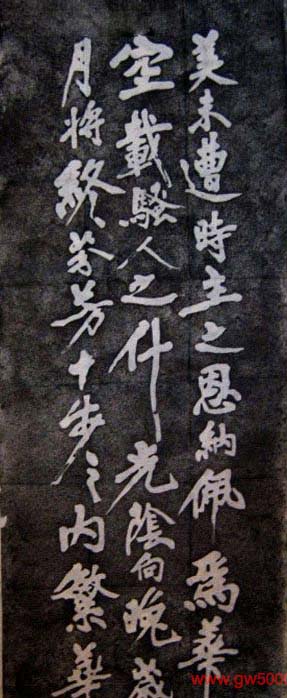 美未遭時主之恩納佩爲華
空載騷人之什光陰向晚歲
月將終芬芳十步之內繁華
www.gw500